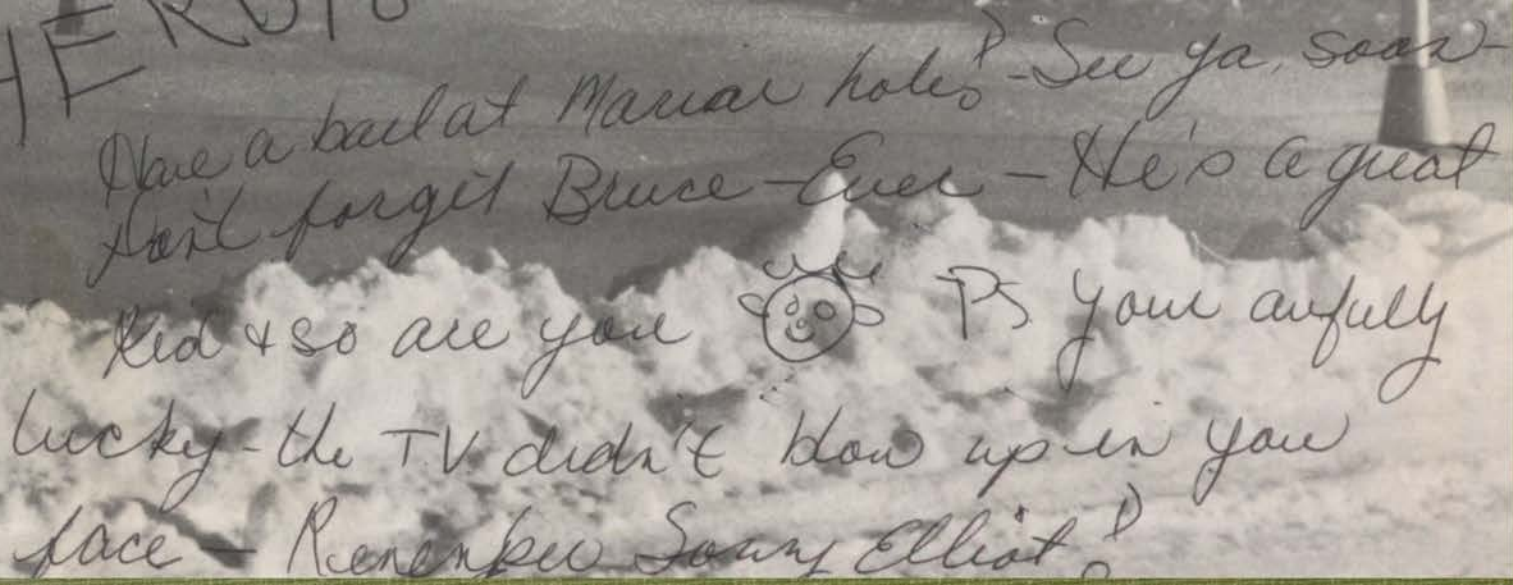 Have a ball at Marian holes! - See ya, soon -
Don't forget Bruce - Ever - He's a great
Kid + so are you PS your awfully
lucky - the T.V. didn't blow up in you
face - Remember Sonny Elliot!